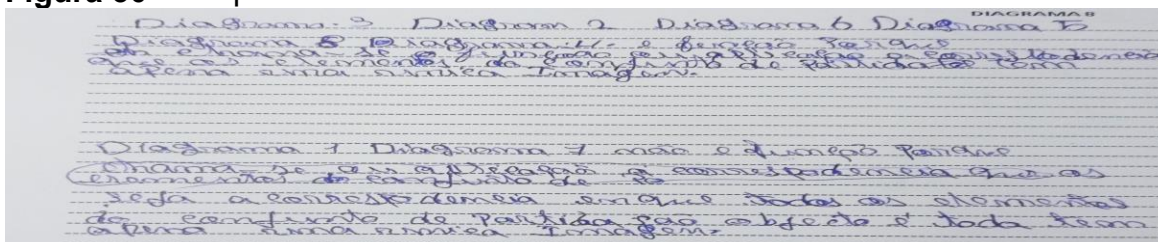 DIAGRAMA 8
Diagrama. 3 Diagrama 2 Diagrama 6 Diagrama 5
Diagrama 8 Diagrama 4. é função Porque
chama se função a aplicação a correspodencia
que os elementos do conjunto de Partida tem
apena uma unica Imagem.
Diagrama 1 Diagrama 7 não é função Porque
chama se as aplicação a correspodencia que os
elementos do conjunto de
seja a correspodencia em que todos os elementos
do conjunto de Partida são objecto e toda tem
apena uma unica Imagem.